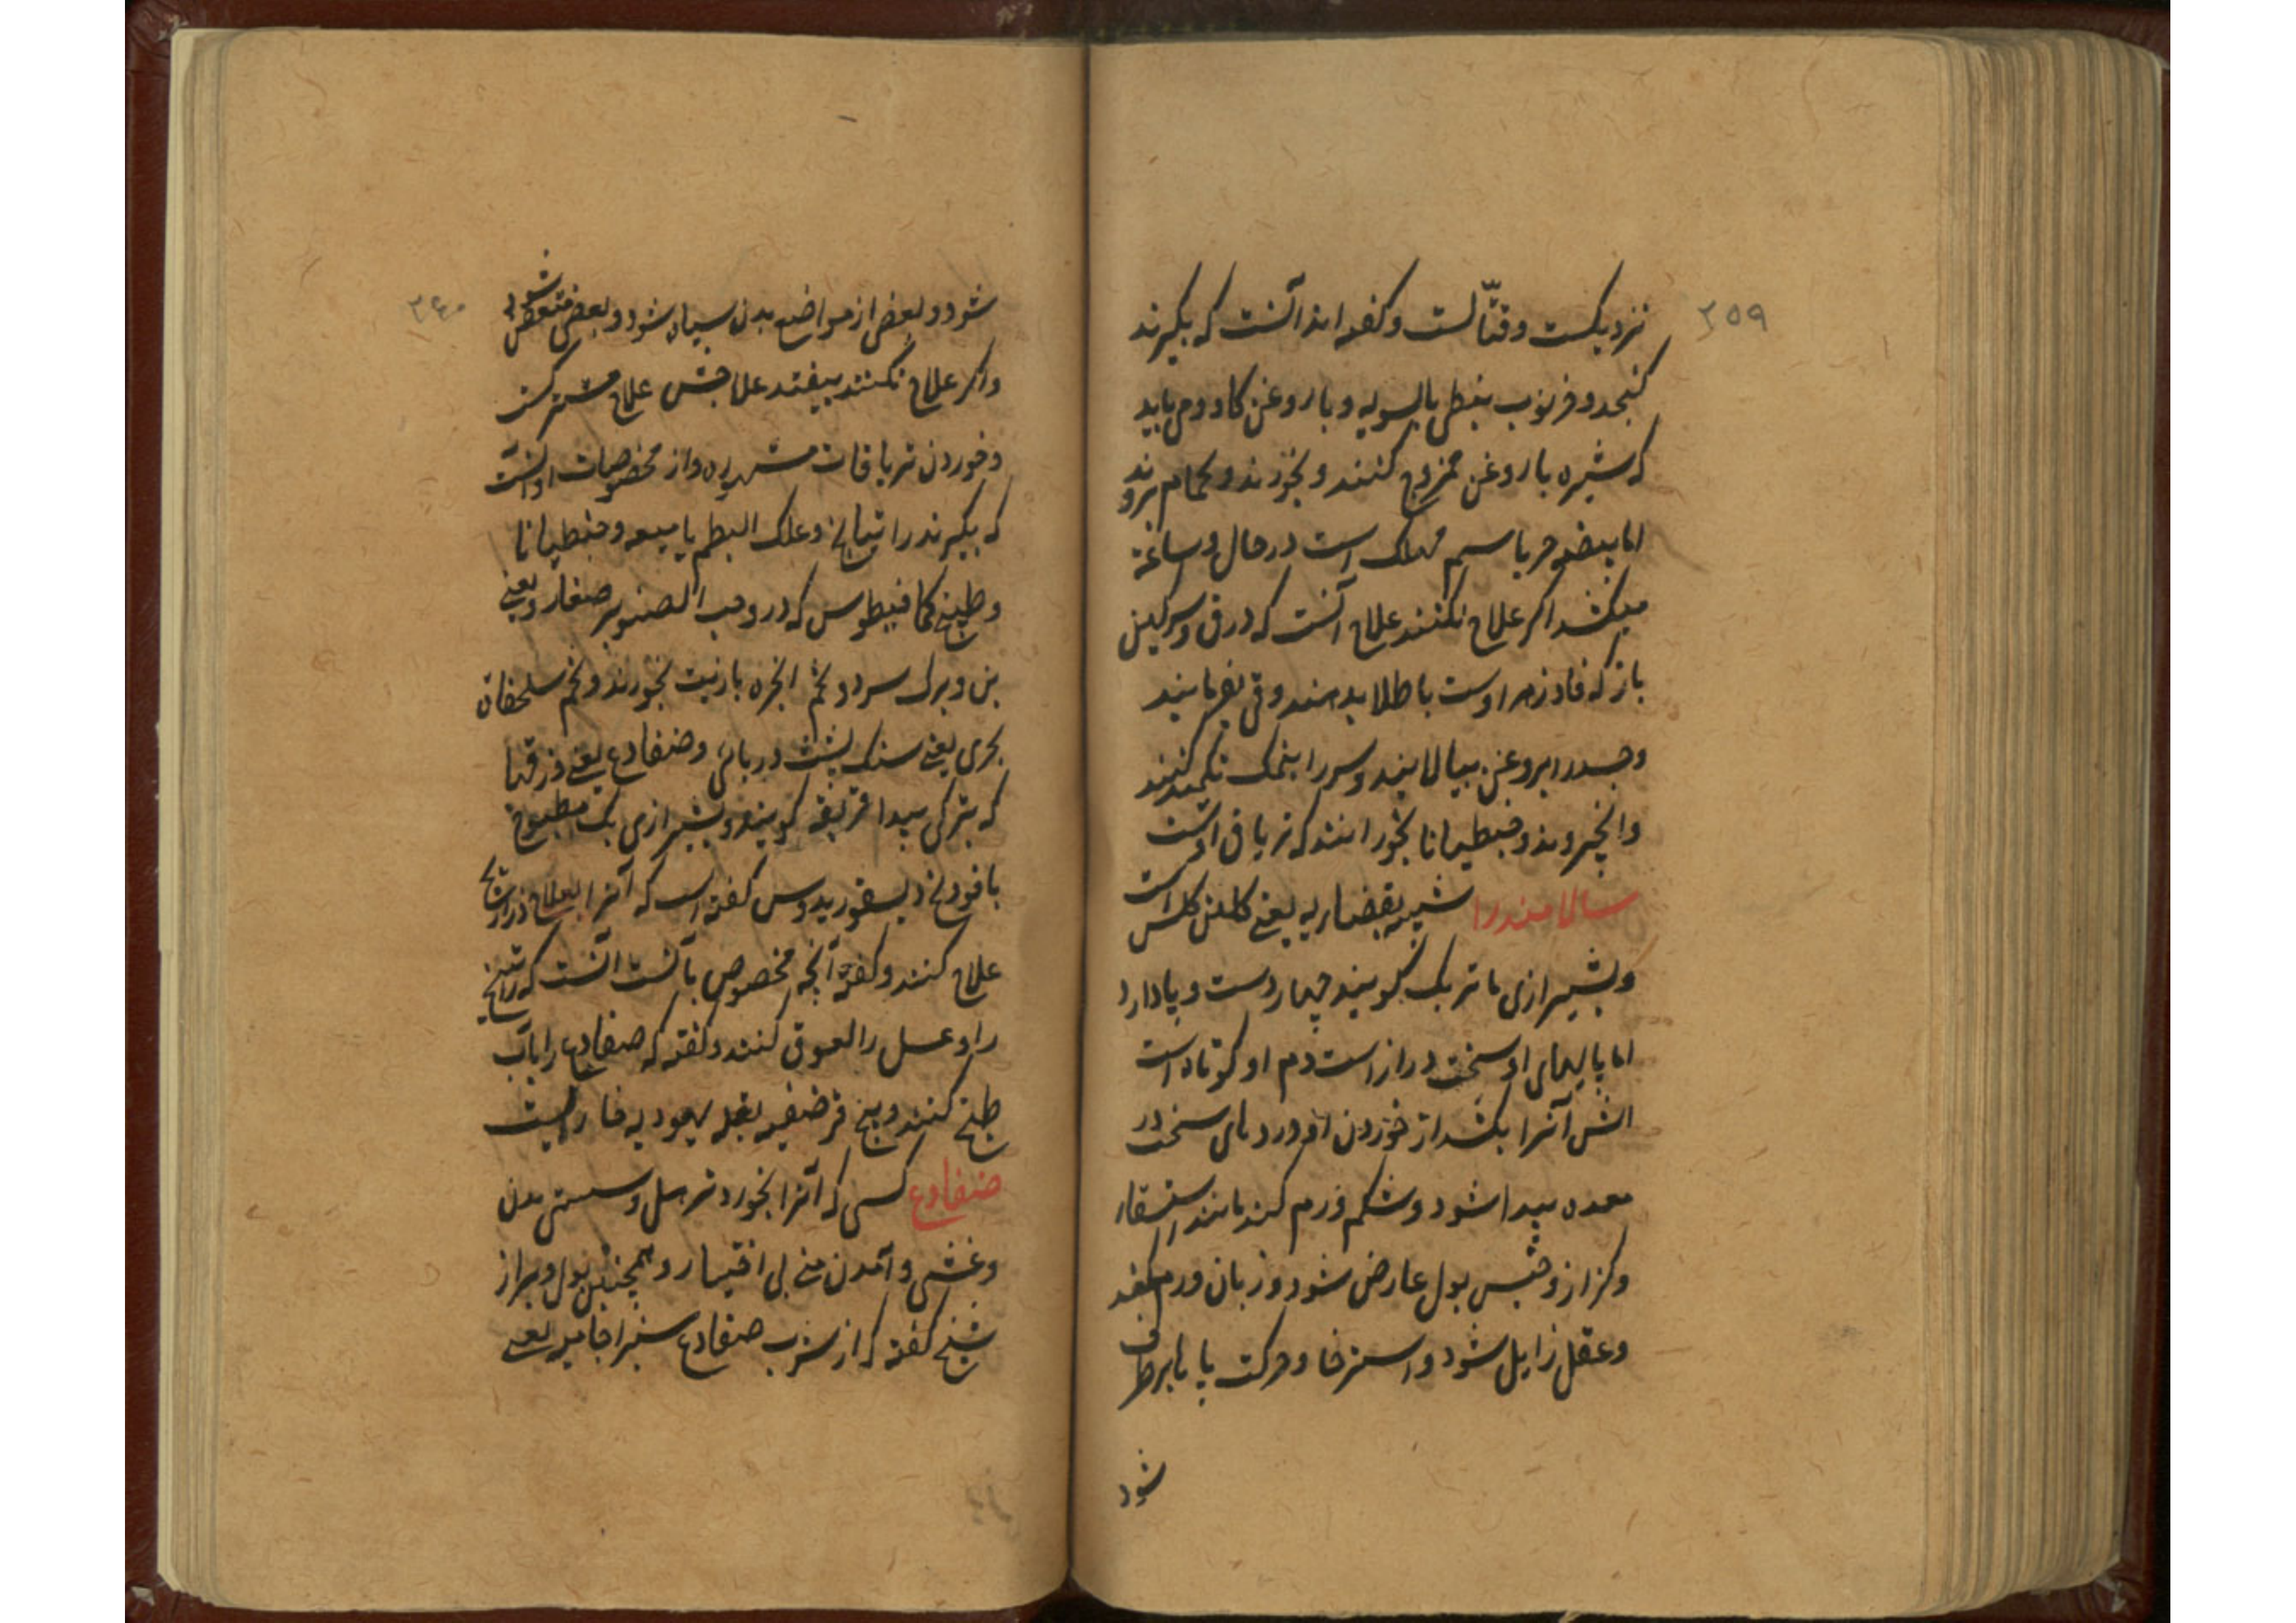 ۲۵۹
نزدیکست و قتّالست و گفته اند آنست که بگیرند
کنجد و خرنوب نبطی بالسویه و با روغن کاو و می باید
که شیره با روغن ممزوج کنند و بخورند و بحمام بروند
اما بیضه حربا سم مهلک است در حال و ساعة
میکشد اکر علاج نکنند علاج آنست که ذرق و سرکین
باز که فادزهر اوست با طلا بدهند و قی بفرمایند
و جسد را بروغن بیالایند و سر را بنمک تکمید کنند
و انجیر و جنطیانا بخورانند که تریاق اوست
سالامندرا شبیه بقضاریه یعنی است
و بشیرازی ماتربک کویند چهار دست و پا دارد
اما پایهای او سخت دراز است دم او کوتاه است
اتش آنرا بکشد از خوردن او دردهای سخت در
معده پیدا شود و شکم ورم کند مانند استسقاء
و کزاز و حبس بول عارض شود و زبان ورم کند
و عقل زایل شود و استرخا و حرکت پا بابرطرف
شود
۲۶۰
شود و بعضی از مواضع بدن سیاه شود و بعضی متعفن شود
و اکر علاج نکنند بیفتد علاجش علاج مشترکست
و خوردن تریاقات مشهوره و از مخصوصات او آنست
که بکیرند راتیانج و علک البطم یا میعه و جنطیانا
و طبیخ کمافیطوس که در و حب الصنوبر صغار و یعنی
بن و برک سرو و تخم انجره با زیت بخورند و تخم سلحفاة
بحری یعنی سنک پشت دریای و ضفادع یعنی وزقها
که بترکی قربقه کویند و بشیرازی بک مطبوخ
با فودنج دیسقوریدوس کفته است که آنرا بعلاج ذراریح
علاج کنند و کفته آنچه مخصوص بآنست آنست که راتینج
را و عسل را لعوق کنند و کفته که ضفادع را بآب
طبخ کنند و بیخ قرضفیر بقله یهودیه فارسیست
ضفادع کسی که آنرا بخورد ترهل و سستی بدن
و غشی و آمدن منی بی اختیار و همچنین بول و براز
شیخ کفته که از شرب ضفادع سبز اجامیه یعنی